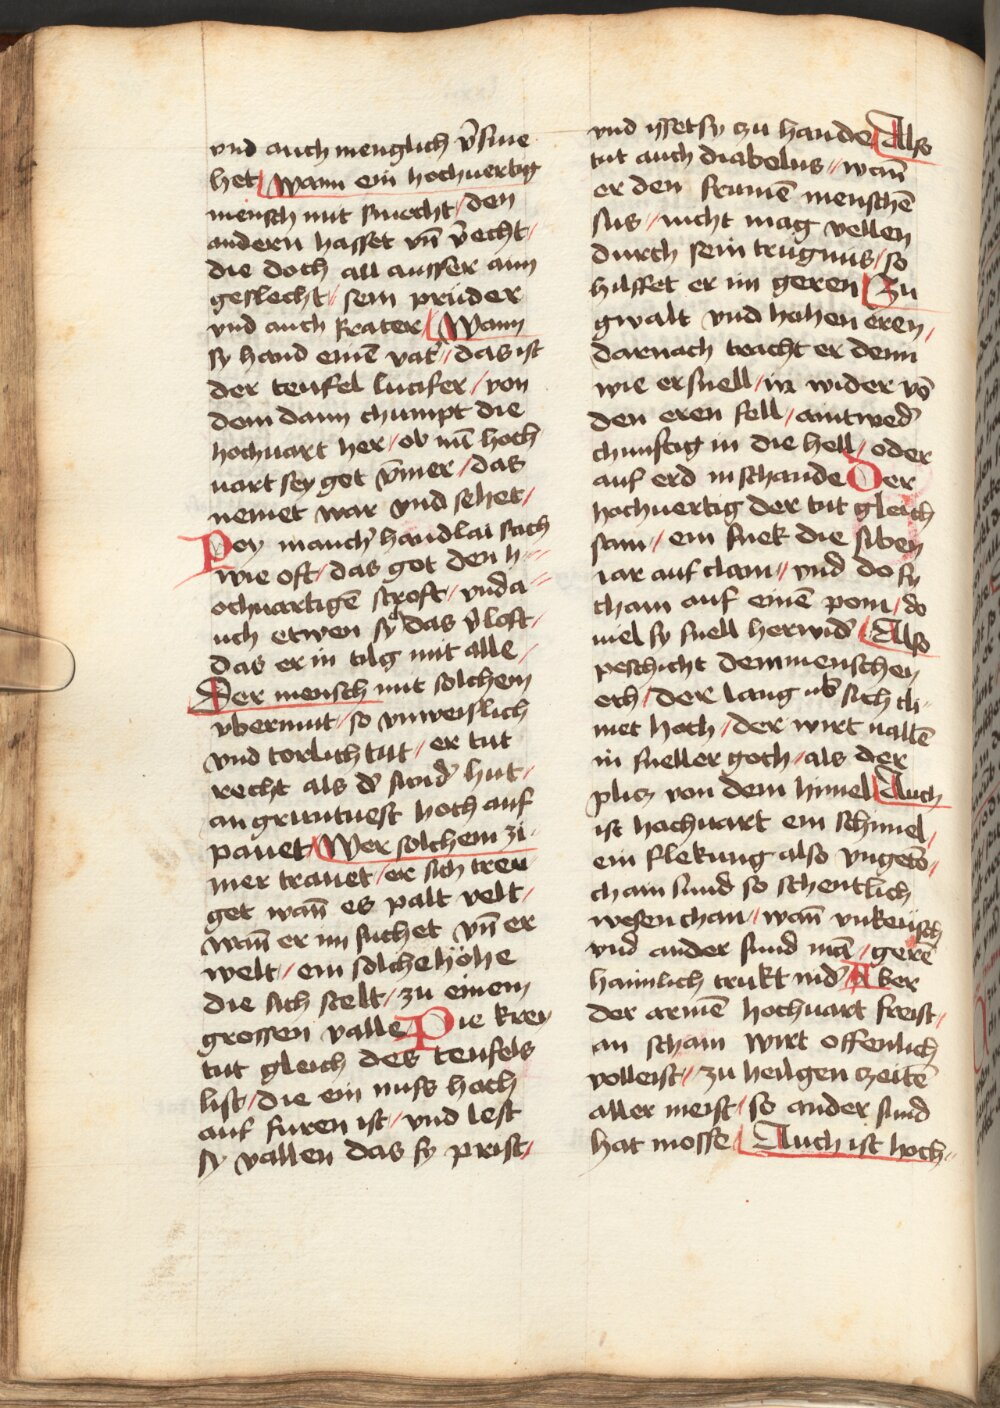 vnd auch menglich v̾sme
het / Wann ein hochuertig
mensch mit smecht / den
andern hasset vn̄ v̾echt /
die doch all ausser ainn
geslecht // sein prüder
vnd auch frater / Wann
sy hand einē vat̾ // das ist
der teufel lucifer / von
dem dann chumpt die
hochuart her / ob nu̅ hoch
uart sey got v̾mer / das
nemet war vnd sehet /
Pey manch̾ handlai sach
wie oft / das got den h //
ochuartigē stroft / vnd a //
uch etwen sy das v̾loft /
das er in tilg mit alle /
Der mensch mit solchem
vbermut / so vnweislich
vnd torlich tut // er tut
recht als d̾ sein̾ hut /
an gruntuest hoch auf
pauet / Wer solchem zi //
mer trauet / er sich treu
get wan̄ es palt velt /
wan̄ er im suchet vn̄ er
welt // ein solche höhe
die sich stelt / zu einem
grossen valle Die krey
tut gleich des teufels
list / die ein nuss hoch
auf furen ist / vnd lest
sy vallen das sy prist /
vnd isset sy czu hande / Also
tut auch diabolus // wan̄
er den frumē menschē
sus / nicht mag vellen
durch sein trugnus / so
hilffet er im geren / Zu
gwalt vnd hohen eren /
darnach tracht er denn
wie er snell / in wider vō
den eren fell / aintwed̾
chunftig in die hell / oder
auf erd in schande Der
hochuertig der tut gleich
sam // ein snek die siben
iar auf clam // vnd do sy
cham auf einē pom / do
viel sy snell herwid̾ / Also
peschicht dem menschen
ech / der lang vb̾ sich cli //
met hoch / der wirt vallē
in sneller goch / als der
plicz von dem himel / Auch
ist hochuart ein schimel /
ein flekung also vngelo //
cham sund so schentlich
wesen chan // wan̄ vnkeusch
vnd ander sund mā / gerē
haimlich trukt nid̾ / Aber
der armē hochuart freist /
an scham wirt offenlich
volleist // zu heiligen czeitē
aller meist / so ander sund
hat mosse / Auch ist hoch //